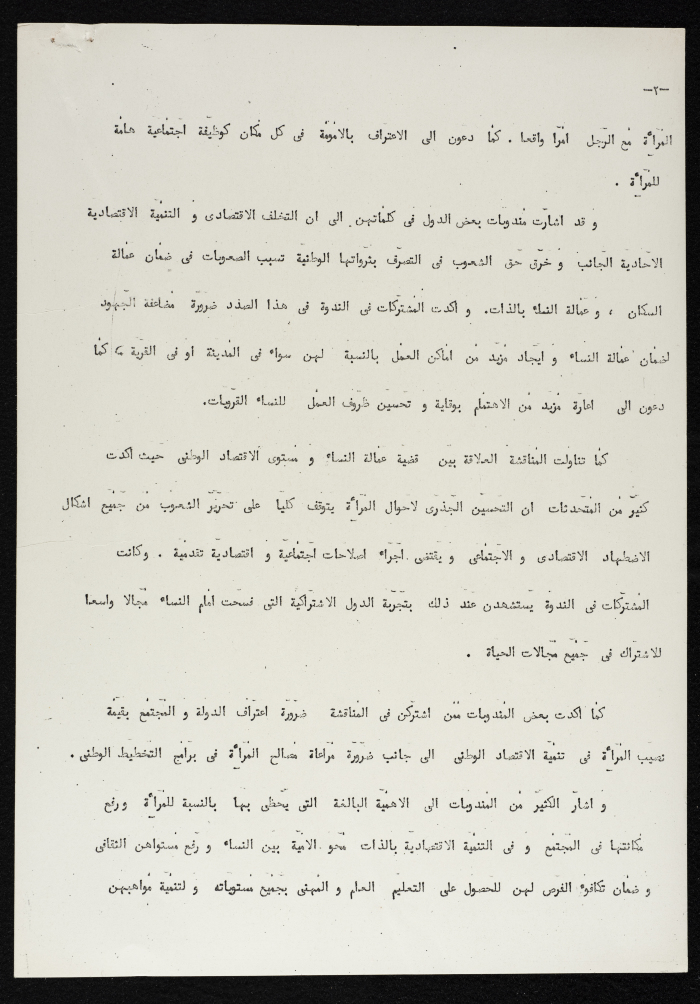 -٢-
المرأة مع الرجل امرا واقعا . كما دعون الى الاعتراف بالامومة فى كل مكان كوظيفة اجتماعية هامة
للمرأة .
و قد اشارت مندوبات بعض الدول فى كلماتهن الى ان التخلف الاقتصادى و التنمية الاقتصادية
الاحادية الجانب و خرق حق الشعوب فى التصرف بثرواتها الوطنية تسبب الصعوبات فى ضمان عمالة
السكان ، و عمالة النساء بالذات. و اكدت المشتركات فى الندوة فى هذا الصدد ضرورة مضاعفة الجهود
لضمان عمالة النساء و ايجاد مزيد من اماكن العمل بالنسبة لهن سواء فى المدينة او فى القرية ، كما
دعون الى اعارة مزيد من الاهتمام بوقاية و تحسين ظروف العمل للنساء القرويات.
كما تناولت المناقشة العلاقة بين قضية عمالة النساء و مستوى الاقتصاد الوطنى حيث اكدت
كثير من المتحدثات ان التحسين الجذرى لاحوال المرأة يتوقف كليا على تحرير الشعوب من جميع اشكال
الاضطهاد الاقتصادى و الاجتماعى و يقتضى اجراء اصلاحات اجتماعية و اقتصادية تقدمية . وكانت
المشتركات فى الندوة يستشهدن عند ذلك بتجربة الدول الاشتراكية التى فسحت امام النساء مجالا واسعا
للاشتراك فى جميع مجالات الحياة .
كما اكدت بعض المندوبات ممن اشتركن فى المناقشة ضرورة اعتراف الدولة و المجتمع بقيمة
نصيب المرأة فى تنمية الاقتصاد الوطنى الى جانب ضرورة مراعاة مصالح المرأة فى برامج التخطيط الوطنى.
و اشار الكثير من المندوبات الى الاهمية البالغة التى يحظى بها بالنسبة للمرأة و رفع
مكانتها فى المجتمع و فى التنمية الاقتصادية بالذات محو الامية بين النساء و رفع مستواهن الثقافى
و ضمان تكافوء الفرص لهن للحصول على التعليم العام و المهنى بجميع مستوياته و لتنمية مواهبهن